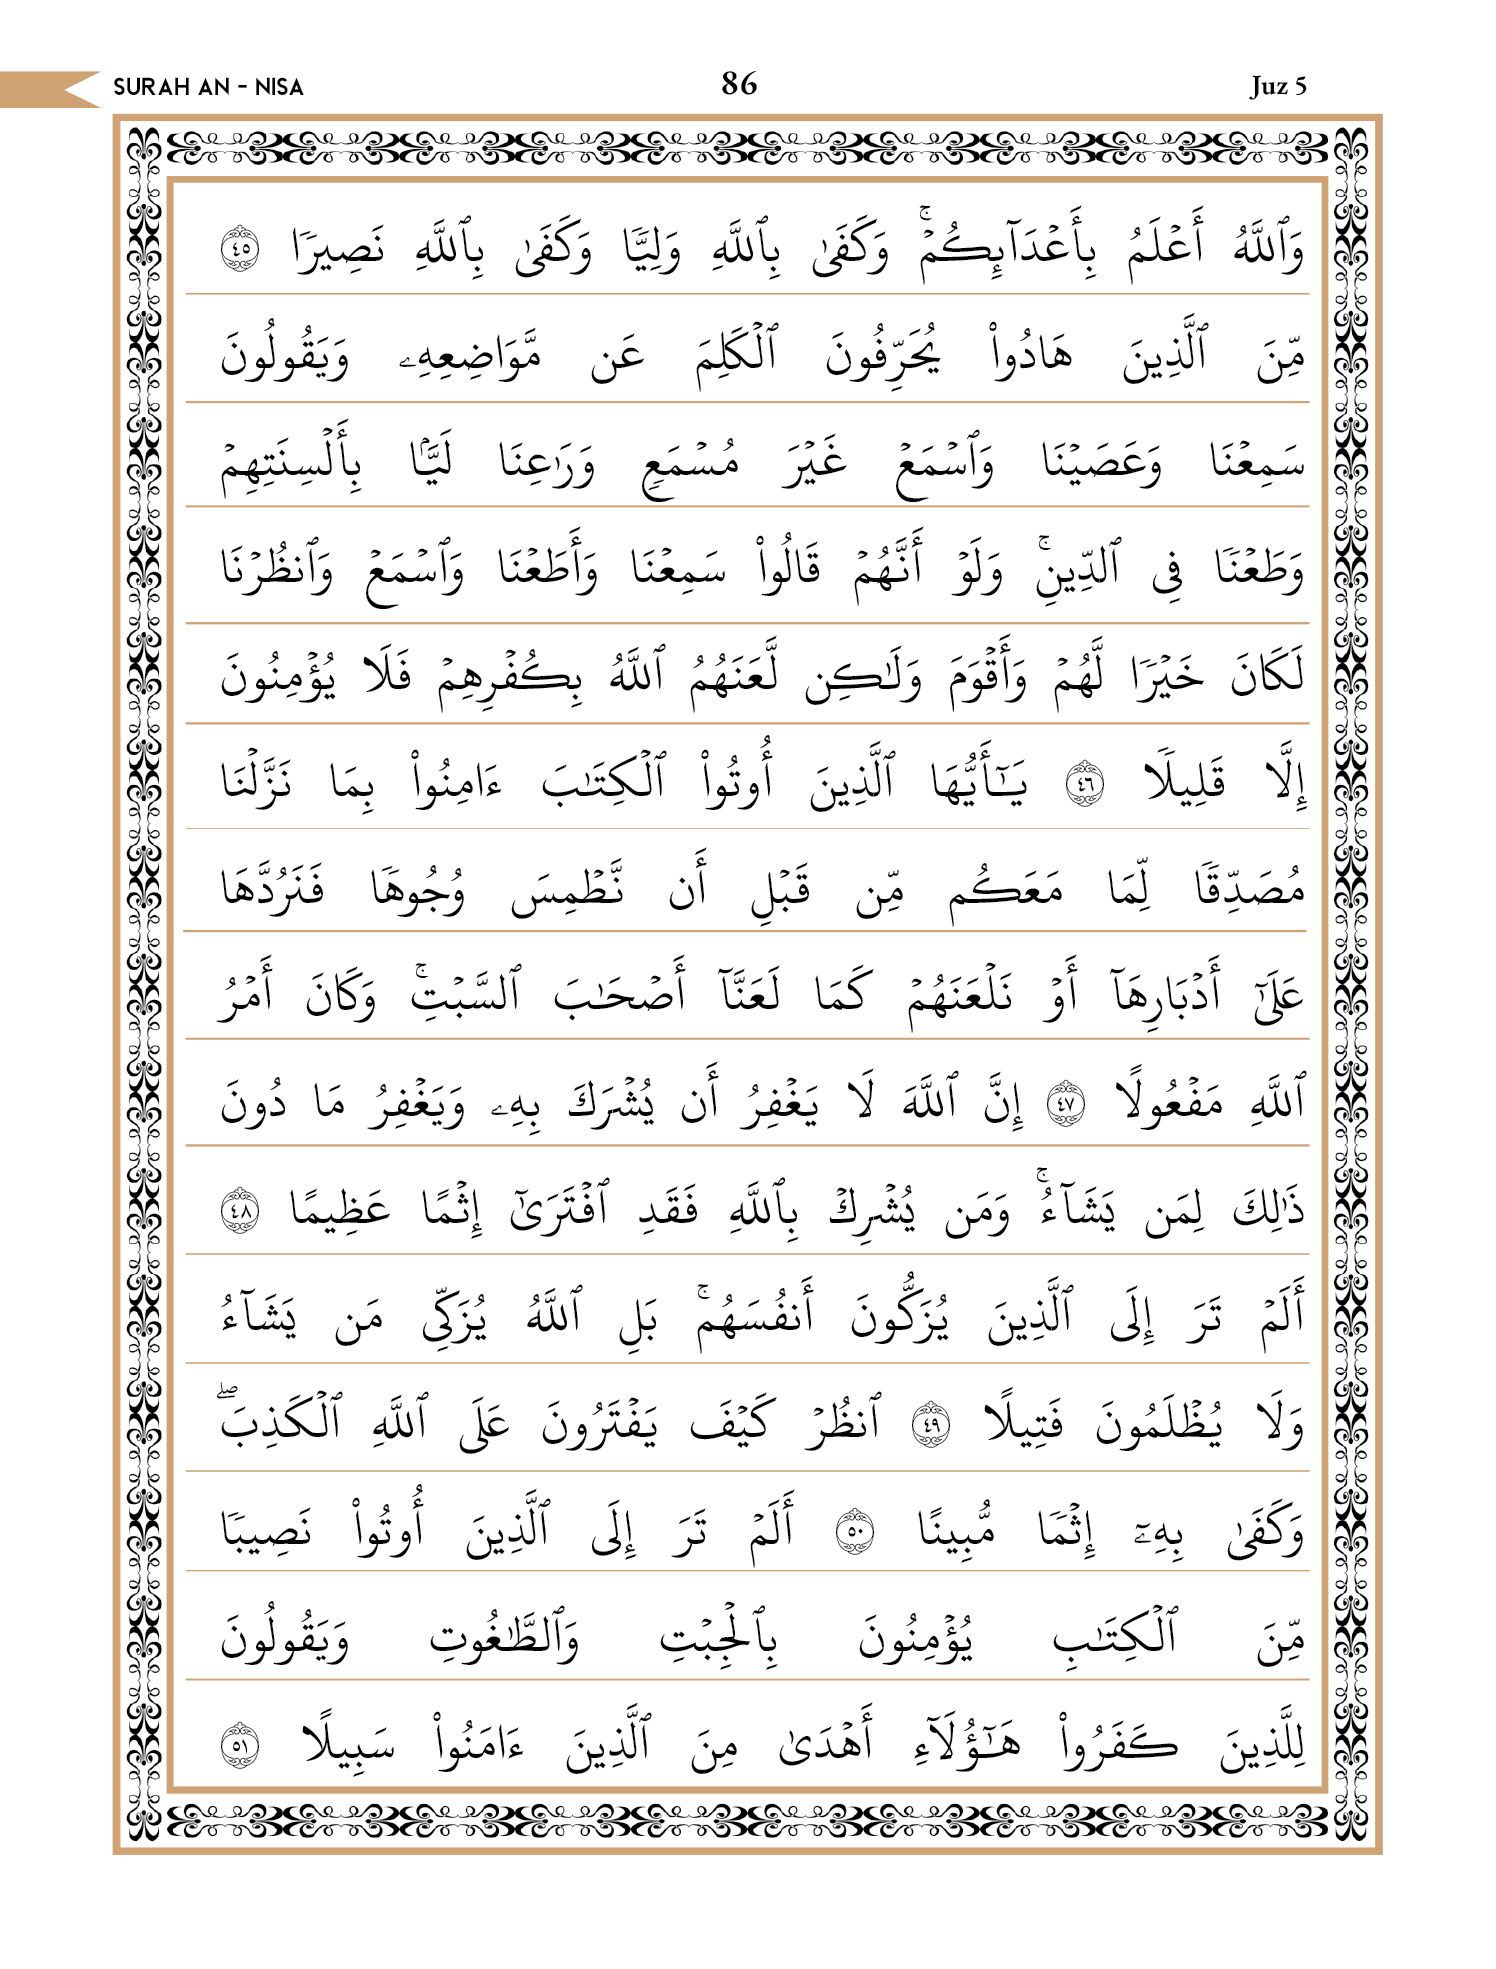 SURAH AN - NISA 86 Juz 5
وَٱللَّهُ أَعْلَمُ بِأَعْدَآئِكُمْ ۚ وَكَفَىٰ بِٱللَّهِ وَلِيًّا وَكَفَىٰ بِٱللَّهِ نَصِيرًا ٤٥
مِّنَ ٱلَّذِينَ هَادُوا۟ يُحَرِّفُونَ ٱلْكَلِمَ عَن مَّوَاضِعِهِۦ وَيَقُولُونَ
سَمِعْنَا وَعَصَيْنَا وَٱسْمَعْ غَيْرَ مُسْمَعٍ وَرَٰعِنَا لَيًّۢا بِأَلْسِنَتِهِمْ
وَطَعْنًا فِى ٱلدِّينِ ۚ وَلَوْ أَنَّهُمْ قَالُوا۟ سَمِعْنَا وَأَطَعْنَا وَٱسْمَعْ وَٱنظُرْنَا
لَكَانَ خَيْرًا لَّهُمْ وَأَقْوَمَ وَلَـٰكِن لَّعَنَهُمُ ٱللَّهُ بِكُفْرِهِمْ فَلَا يُؤْمِنُونَ
إِلَّا قَلِيلًا ٤٦ يَـٰٓأَيُّهَا ٱلَّذِينَ أُوتُوا۟ ٱلْكِتَـٰبَ ءَامِنُوا۟ بِمَا نَزَّلْنَا
مُصَدِّقًا لِّمَا مَعَكُم مِّن قَبْلِ أَن نَّطْمِسَ وُجُوهًا فَنَرُدَّهَا
عَلَىٰٓ أَدْبَارِهَآ أَوْ نَلْعَنَهُمْ كَمَا لَعَنَّآ أَصْحَـٰبَ ٱلسَّبْتِ ۚ وَكَانَ أَمْرُ
ٱللَّهِ مَفْعُولًا ٤٧ إِنَّ ٱللَّهَ لَا يَغْفِرُ أَن يُشْرَكَ بِهِۦ وَيَغْفِرُ مَا دُونَ
ذَٰلِكَ لِمَن يَشَآءُ ۚ وَمَن يُشْرِكْ بِٱللَّهِ فَقَدِ ٱفْتَرَىٰٓ إِثْمًا عَظِيمًا ٤٨
أَلَمْ تَرَ إِلَى ٱلَّذِينَ يُزَكُّونَ أَنفُسَهُم ۚ بَلِ ٱللَّهُ يُزَكِّى مَن يَشَآءُ
وَلَا يُظْلَمُونَ فَتِيلًا ٤٩ ٱنظُرْ كَيْفَ يَفْتَرُونَ عَلَى ٱللَّهِ ٱلْكَذِبَ ۖ
وَكَفَىٰ بِهِۦٓ إِثْمًا مُّبِينًا ٥٠ أَلَمْ تَرَ إِلَى ٱلَّذِينَ أُوتُوا۟ نَصِيبًا
مِّنَ ٱلْكِتَـٰبِ يُؤْمِنُونَ بِٱلْجِبْتِ وَٱلطَّـٰغُوتِ وَيَقُولُونَ
لِلَّذِينَ كَفَرُوا۟ هَـٰٓؤُلَآءِ أَهْدَىٰ مِنَ ٱلَّذِينَ ءَامَنُوا۟ سَبِيلًا ٥١